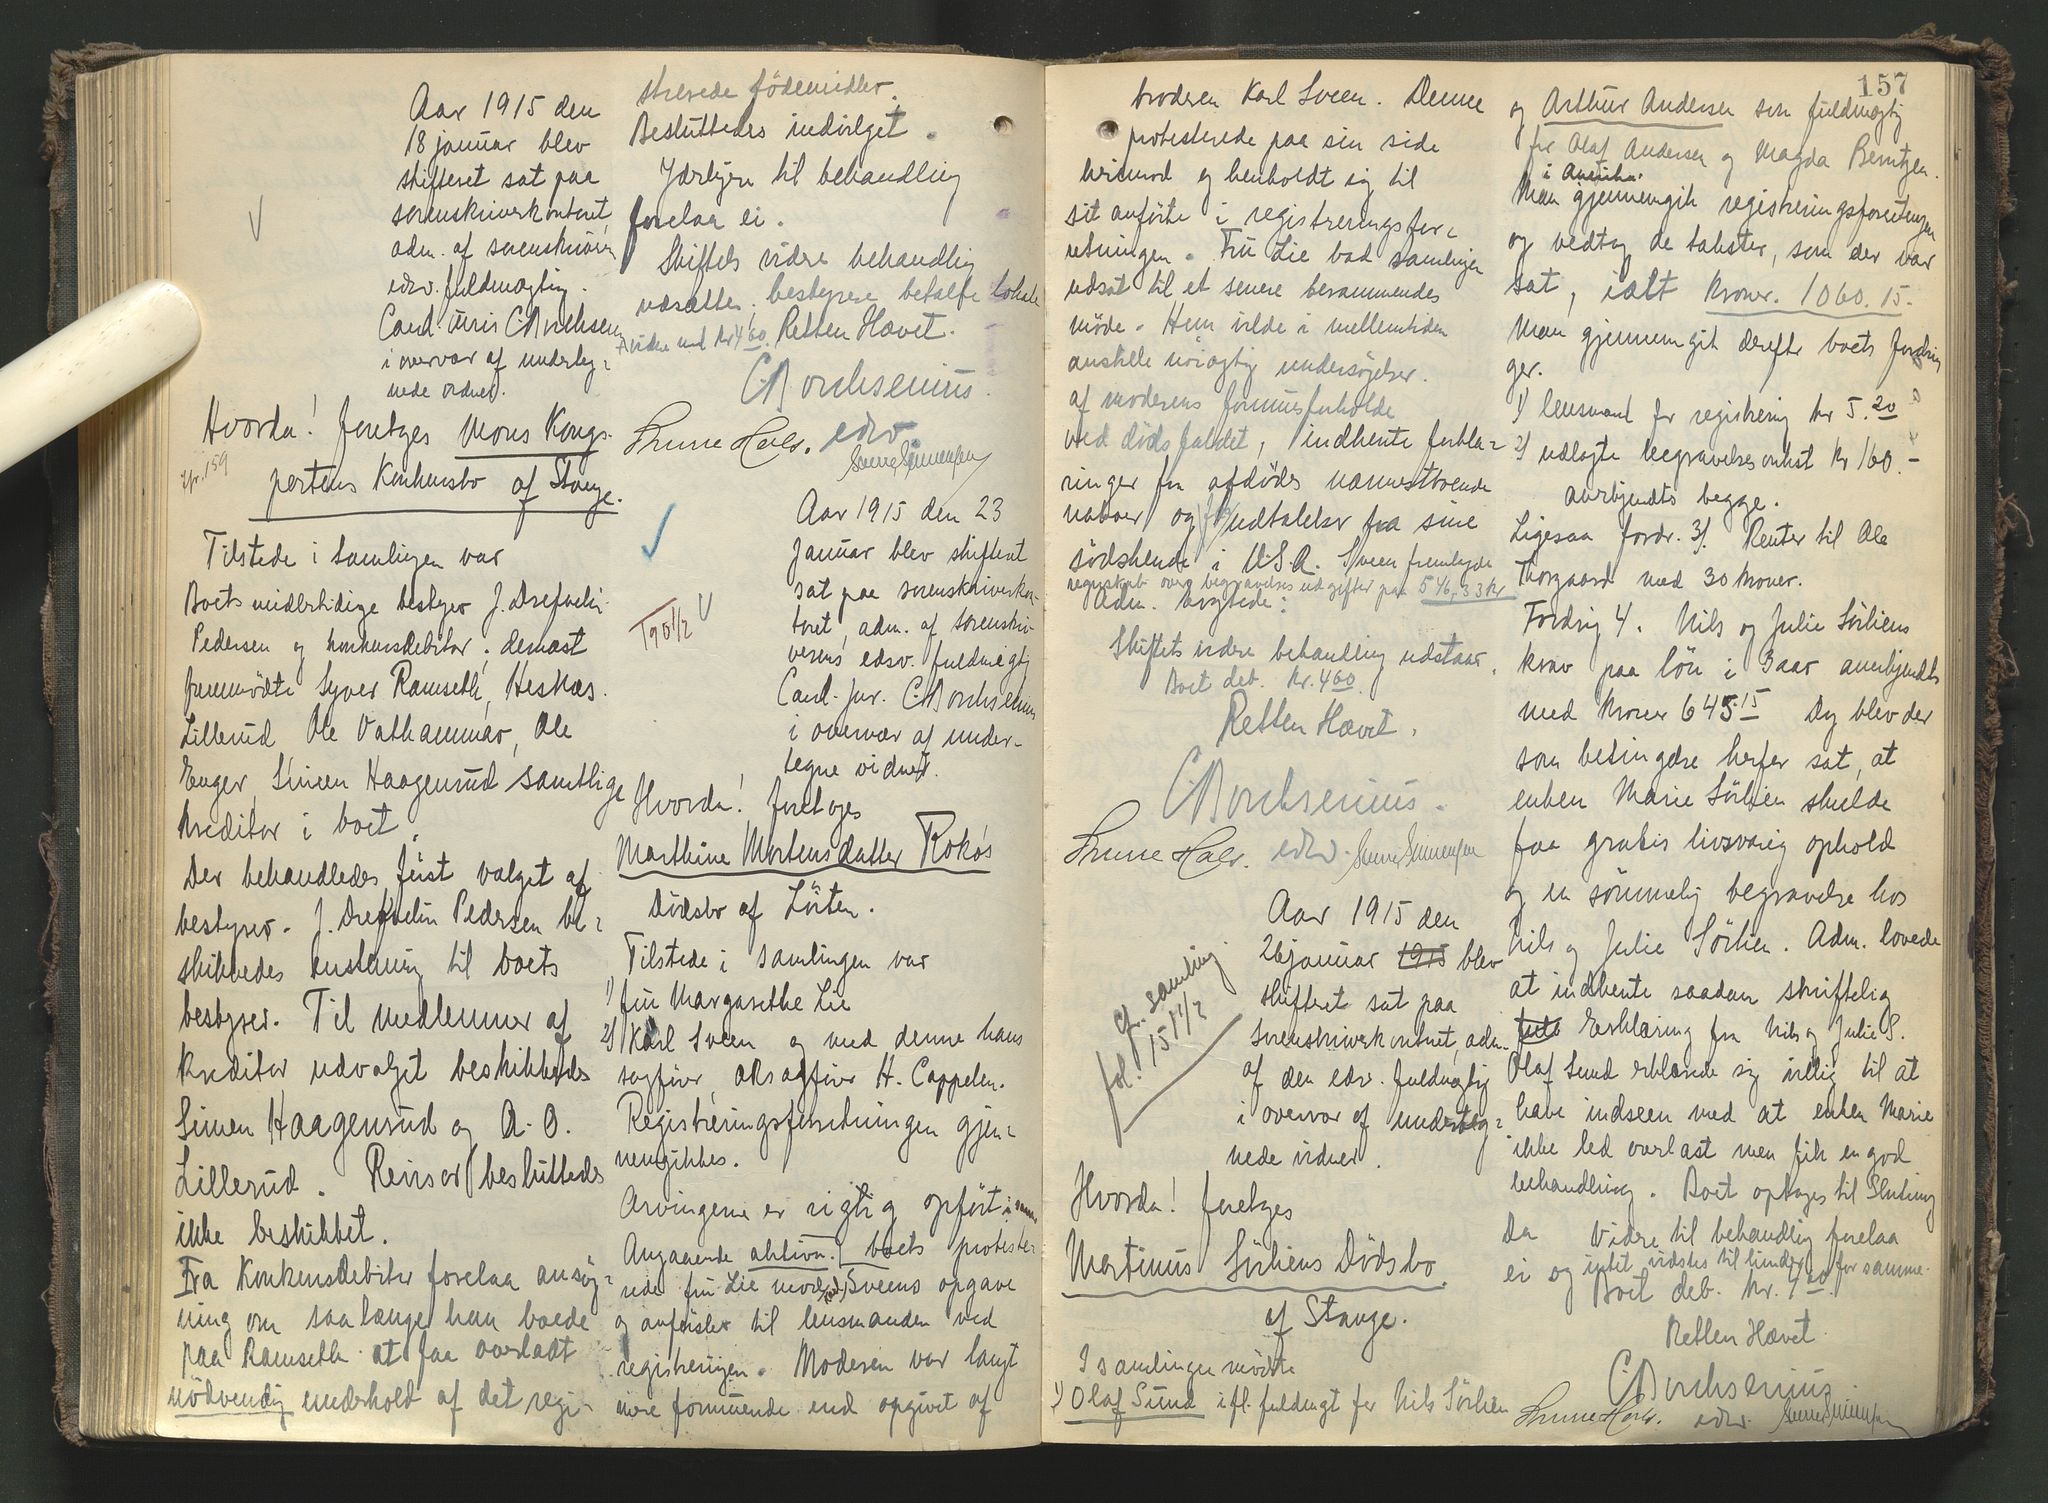 Aar 1915 den
18 januar blev
skifteret sat paa
sorenskriverkontoret,
adm. af sorenskriver
edsv. fuldmægtig
Cand. juris C. Borchsenius
i overvær af underteg-
nede vidner.
Hvorda! foretoges Mons Kongs-
jfr. 159
partens Konkursbo af Stange.
Tilstede i Samlingen var
Boets midlertidige bestyrer J. Drefvelin
Pedersen og konkursdebitor; dernæst
fremmødte Syver Ramseth, Heskas.
Lillerud Ole Vathammar, Ole
Enger, Simen Haagenrud samtlige
kreditor i boet.
Der behandledes først valget af
bestyrer. J. Drefvelin Pedersen be-
skikkedes enstemig til boets
bestyrer. Til medlemmer af
kreditor udvalget beskikkedes
Simen Haagenrud og A. O.
Lillerud. Revisor besluttedes
ikke beskikket.
Fra Konkursdebitor forelaa ansøg-
ning om saalænge han boede
paa Ramseth at faa overladt
nödvendig underhold af det regi-
strerede fødemidler.
Besluttedes indvilget.
Yderligere til behandling
forelaa ei.
Skiftets videre behandling
udsattes, bestyrer betalte lokale
vidne med kr 4 60. Retten Hævet.
C. Borchsenius.
edsv
Aar 1915 den 23
Januar blev skifteret
sat paa sorenskriverkon-
toret, adm. af sorenskri-
verens edsv. fuldmegtig
190 1/2
Cand. jur. C. Borchsenius
i overvær af under-
tegne vidner.
Hvorda! foretoges
Marthine Mortensdatter Rokös
Dödsbo af Löiten.
Tilstede i samlingen var
1) fru Margarethe Lie
2) Karl Sveen og med denne hans
sagfører, oRsagfører H. Cappelen.
Registreringsforretningen gjen-
nemgikkes.
Arvingerne er rigtig opført i samme
Angaaende aktiva i boets proteste-
rede fru Lie mod Sveens opgave
og anførsler til lensmanden ved
registreringen. Moderen var langt
mere formuende end opgivet af
157
broderen Karl Sveen. Denne
protesterede paa sin side
herimod og henholdt sig til
sit anførte i registreringsfor-
retningen. Fru Lie bad samlingen
udsat til et senere berammendes
møde. Hun vilde i mellemtiden
anstille nøiagtig undersøgelser
af moderens formuesforholde
ved dødsfaldet, indhente forkla-
ringer fra afdødes nærmestboende
naboer og udtalelser fra sine
sødskende i U.S.A. Sveen fremlagde
regnskab over begravelses udgifter paa 546,33 kr
Adm. bøgtede:
Skiftets videre behandling udstaar.
Boet deb. Kr. 4 60.
Retten Hævet.
C. Borchsenius.
edsv.
Aar 1915 den
26 januar 1915 blev
skifteret sat paa
Sorenskriverkontoret, adm.
af den edsv. fuldmægtig
i overvær af underteg-
nede vidner.
cfr. samling
fol. 151 1/2
Hvorda! foretoges
Martinus Sörliens Dödsbo
af Stange.
I samlingen mødte
1) Olaf Sund ifl. fuldmagt for Nils Sörlien
og Arthur Andersen som fuldmægtig
for Olaf Andersen og Magda Berntzen
i Amerika.
Man gjennemgik registreringsforretningen
og vedtog de takster, som der var
sat, ialt kroner. 1060.15.
Man gjennemgik derefter boets fordrin
ger.
1) lensmand for registrering kr 5.20
2) udlagte begravelsesomkst kr 160.-
anerkjendtes begge.
Ligesaa fordr. 3). Renter til Ole
Thorgaard med 30 kroner.
Fordrig 4. Nils og Julie Sörliens
krav paa lön i 3 aar anerkjendtes
med Kroner 645.15 Dog blev der
som betingelse herfor sat, at
enken Marie Sörlien skulde
faa gratis livsvarig ophold
og en sömmelig begravelse hos
Nils og Julie Sörlien. Adm. lovede
at indhente saadan skriftelig
Erklæring fra Nils og Julie S.
Olaf Sund erklærede sig villig til at
have indseen med at enken Marie
ikke led overlast men fik en god
behandling. Boet optages til Slutning
Da videre til behandling forelaa
ei og intet vidstes til hinder for samme.
Boet deb. Kr. 4 20.
Retten Hævet.
C. Borchsenius
edsv.